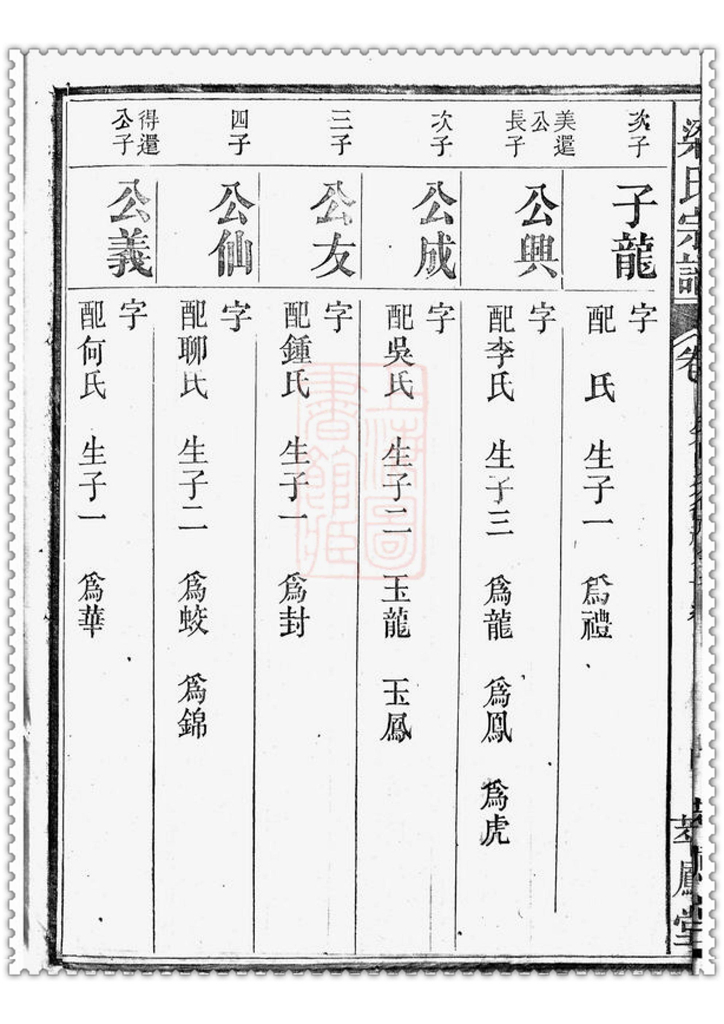 梁氏宗譜
卷
萃鳳堂
次子
子龍
字
配 氏 生子一 爲禮
美還公長子
公興
字
配李氏 生子三 爲龍 爲鳳 爲虎
次子
公成
字
配吳氏 生子二 玉龍 玉鳳
三子
公友
字
配鍾氏 生子一 爲封
四子
公仙
字
配聊氏 生子二 爲蛟 爲錦
得還公子
公義
字
配何氏 生子一 爲華